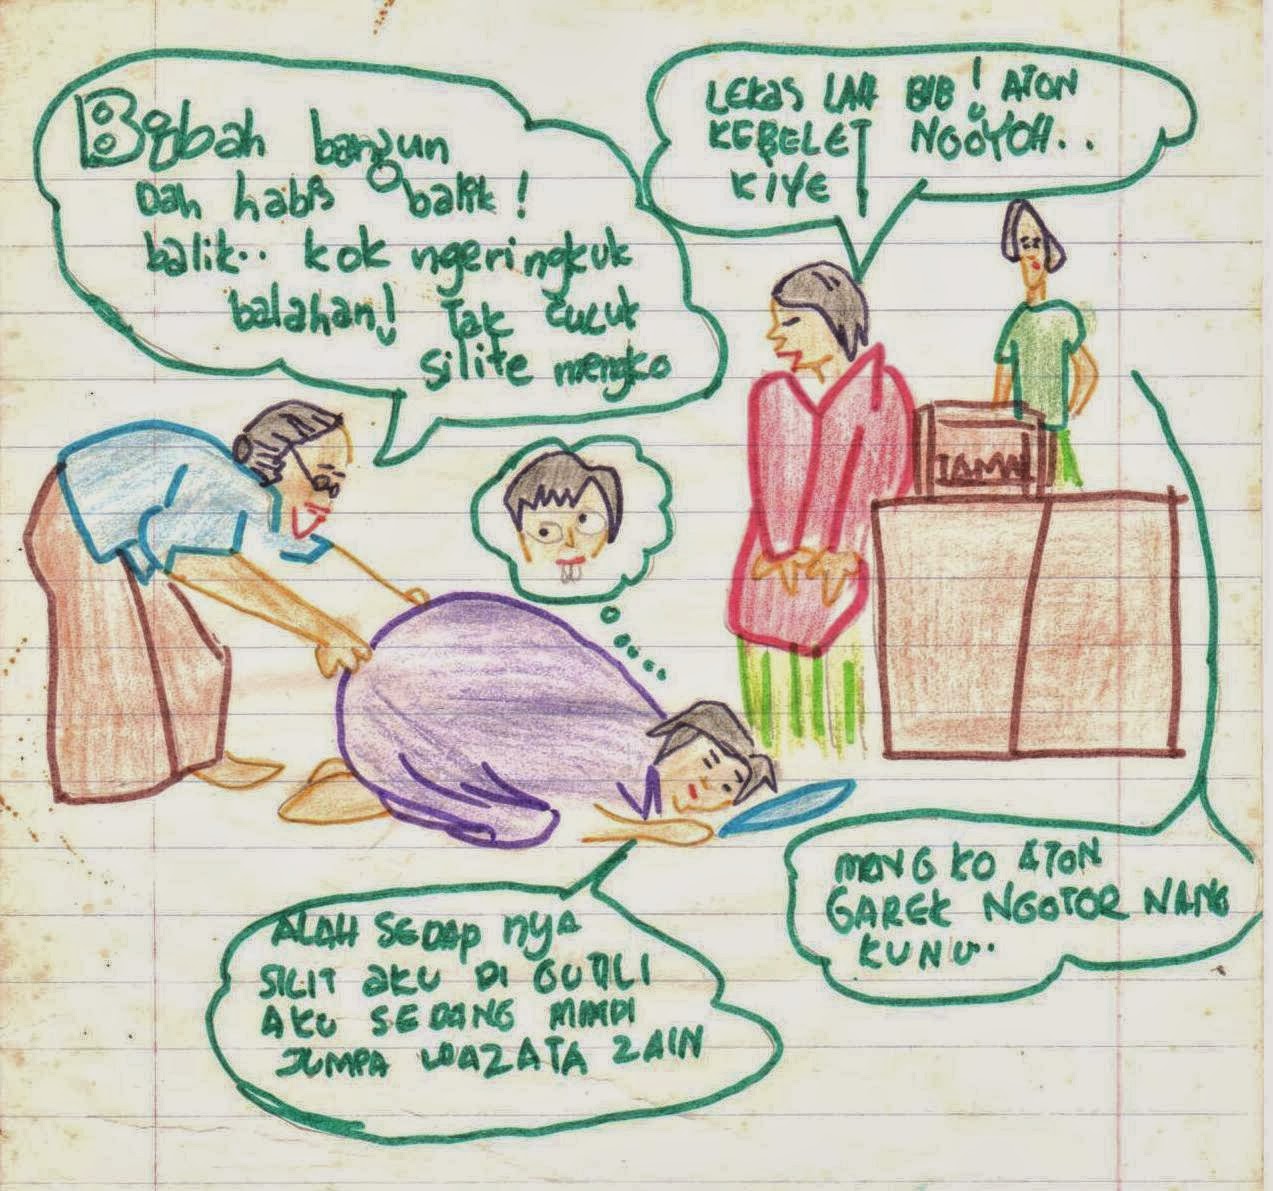 Bibah bangun
Dah habis balik!
balik.. kok ngeringkuk
balahan! Tak cucuk
silite mengko
LEKAS LAH BIB! ATON
KEBELET NGOYOH..
KIYE!
TAMAN
MENGKO ATON
GAREK NGOTOR NANG
KUNU.
ALAH SEDAP nya
SILIT AKU DI GUTILI
AKU SEDANG MIMPI
JUMPA WAZATA ZAIN